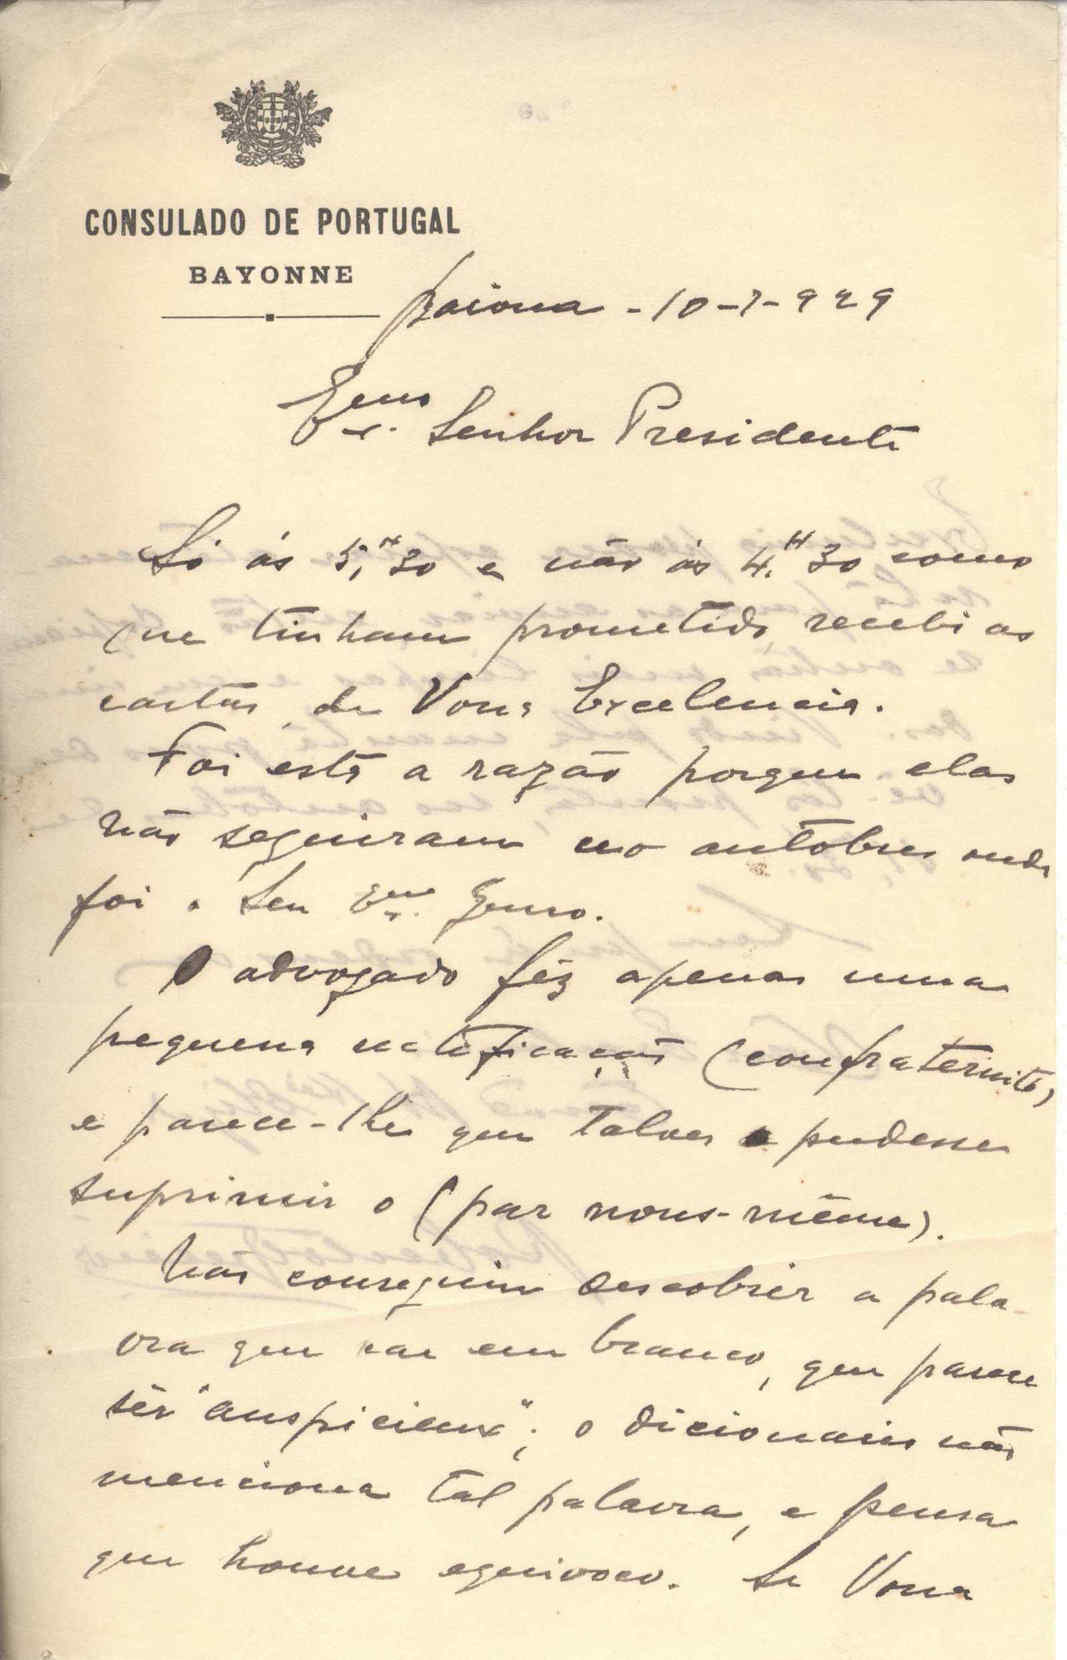 CONSULADO DE PORTUGAL
BAYONNE
Baiona - 10-7-929
Exmo. Senhor Presidente
Só ás 5,H30 e não ás 4,H30 como
me tinham prometido, recebi as
cartas de Vossa Excelencia.
Foi esta a razão porque elas
não seguiram no autobus onde
foi o Seu Exmo. Genro.
O advogado fêz apenas uma
pequena rectificação (confraternité)
e parece-lhe que talvez se pudesse
suprimir o (par nous-même).
Não consegui descobrir a pala-
vra que vae em branco, que parece
sêr "auspicieux"; o dicionario não
menciona tal palavra, e pensa
que houve equivoco. Se Vossa